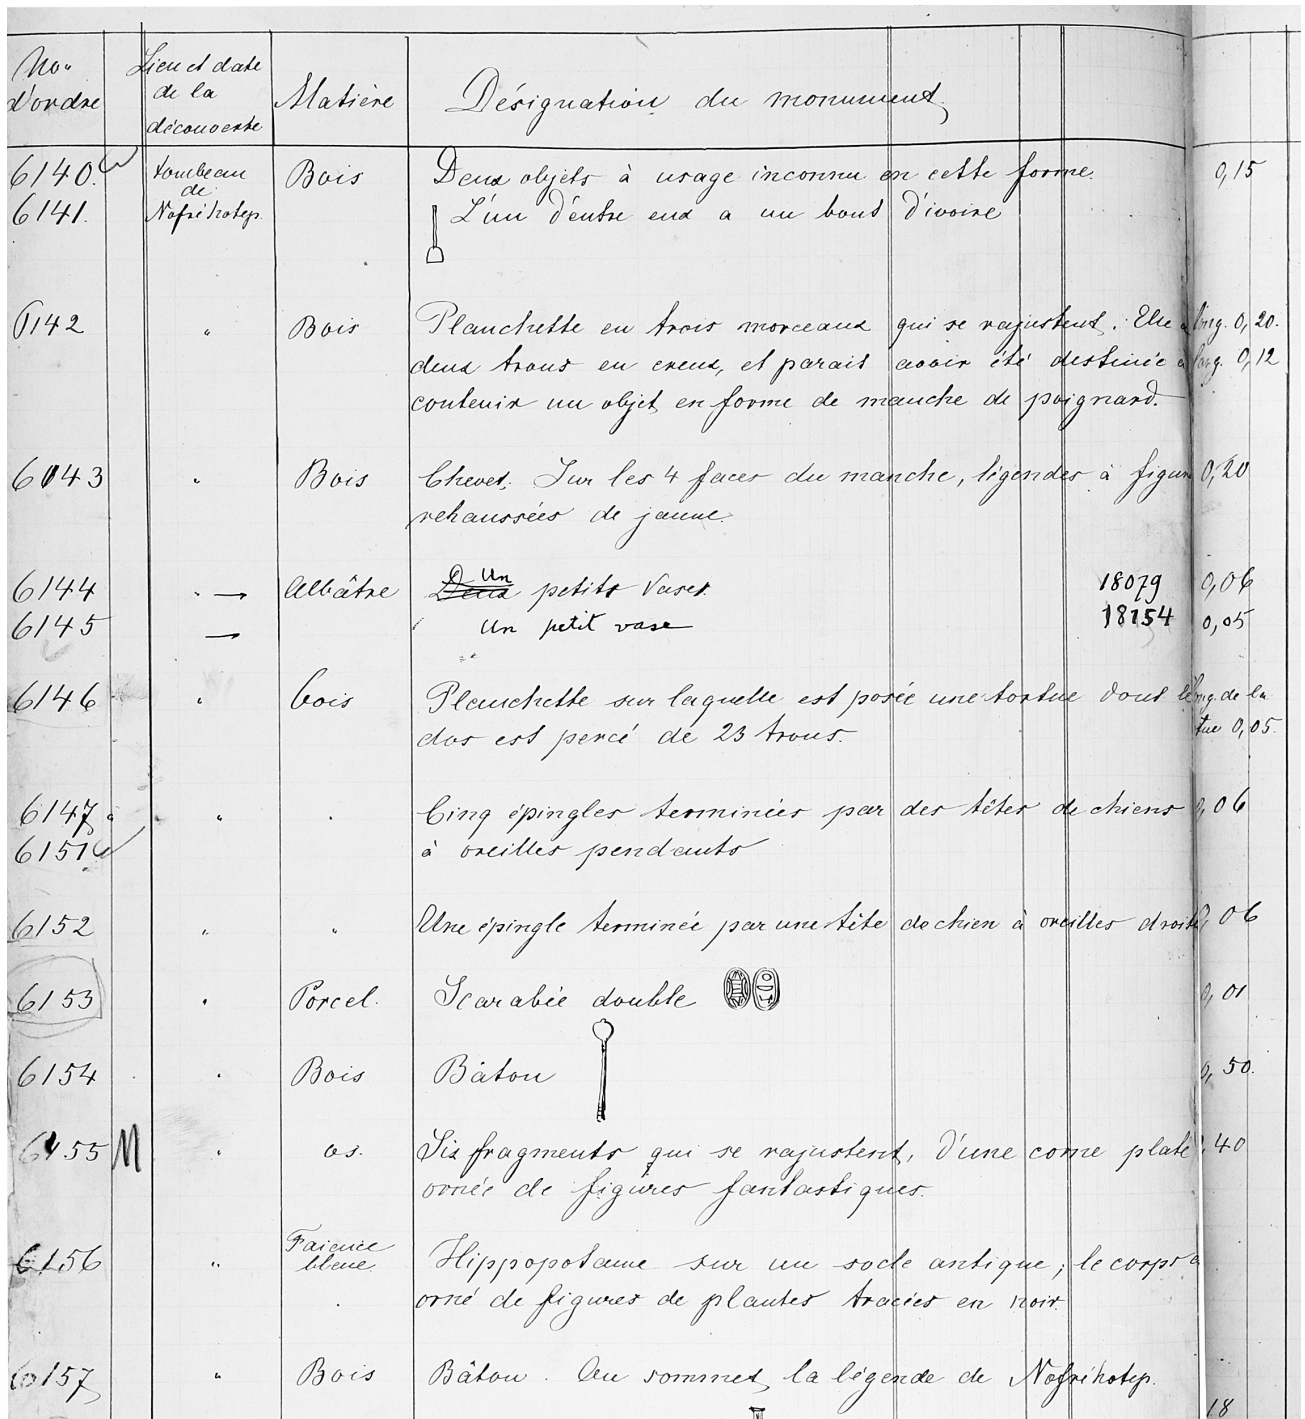 Nos
d'ordre
Lieu et date
de la
découverte
Matière
Désignation du monument
6140. tombeau Bois Deux objets à usage inconnu en cette forme. 0,15
de
6141. Nofrihotep. L'un d'entre eux a un bout d'ivoire
6142 " Bois Planchette en trois morceaux qui se rajustent. Elle a long. 0,20.
deux trous en creux, et parait avoir été destinée à larg. 0,12
contenir un objet en forme de manche de poignard.
6143 " Bois Chevet. Sur les 4 faces du manche, légendes à figures 0,20
rehaussées de jaune.
6144 " Albâtre Deux Un petits vases. 18079 0,06
6145 Un petit vase 18154 0,05
6146 " bois Planchette sur laquelle est posée une tortue dont le long. de la
dos est percé de 23 trous. tue 0,05.
6147 " " Cinq épingles terminées par des têtes de chiens 0,06
6151 à oreilles pendants
6152 " " Une épingle terminée par une tête de chien à oreilles droites 0,06
6153 " Porcel. Scarabée double 0,01
6154 " Bois Bâton 0,50.
6155 M " os. Six fragments qui se rajustent, d'une corne plate 0,40
ornée de figures fantastiques.
6156 " Faience
bleue. Hippopotame sur un socle antique; le corps a
orné de figures de plantes tracées en noir.
6157 " Bois Bâton. Au sommet, la légende de Nofrihotep.
18